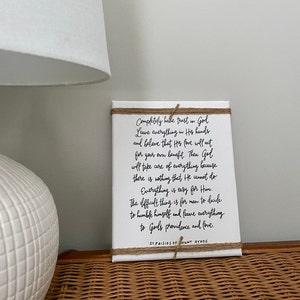 Completely have trust in God.
Leave everything in His hands
and believe that His love will act
for your own benefit. Then God
will take care of everything because
there is nothing that He cannot do.
Everything is easy for Him.
The difficult thing is for man to decide
to humble himself and leave everything
to God's providence and love.
ST PAISIOS OF MOUNT ATHOS